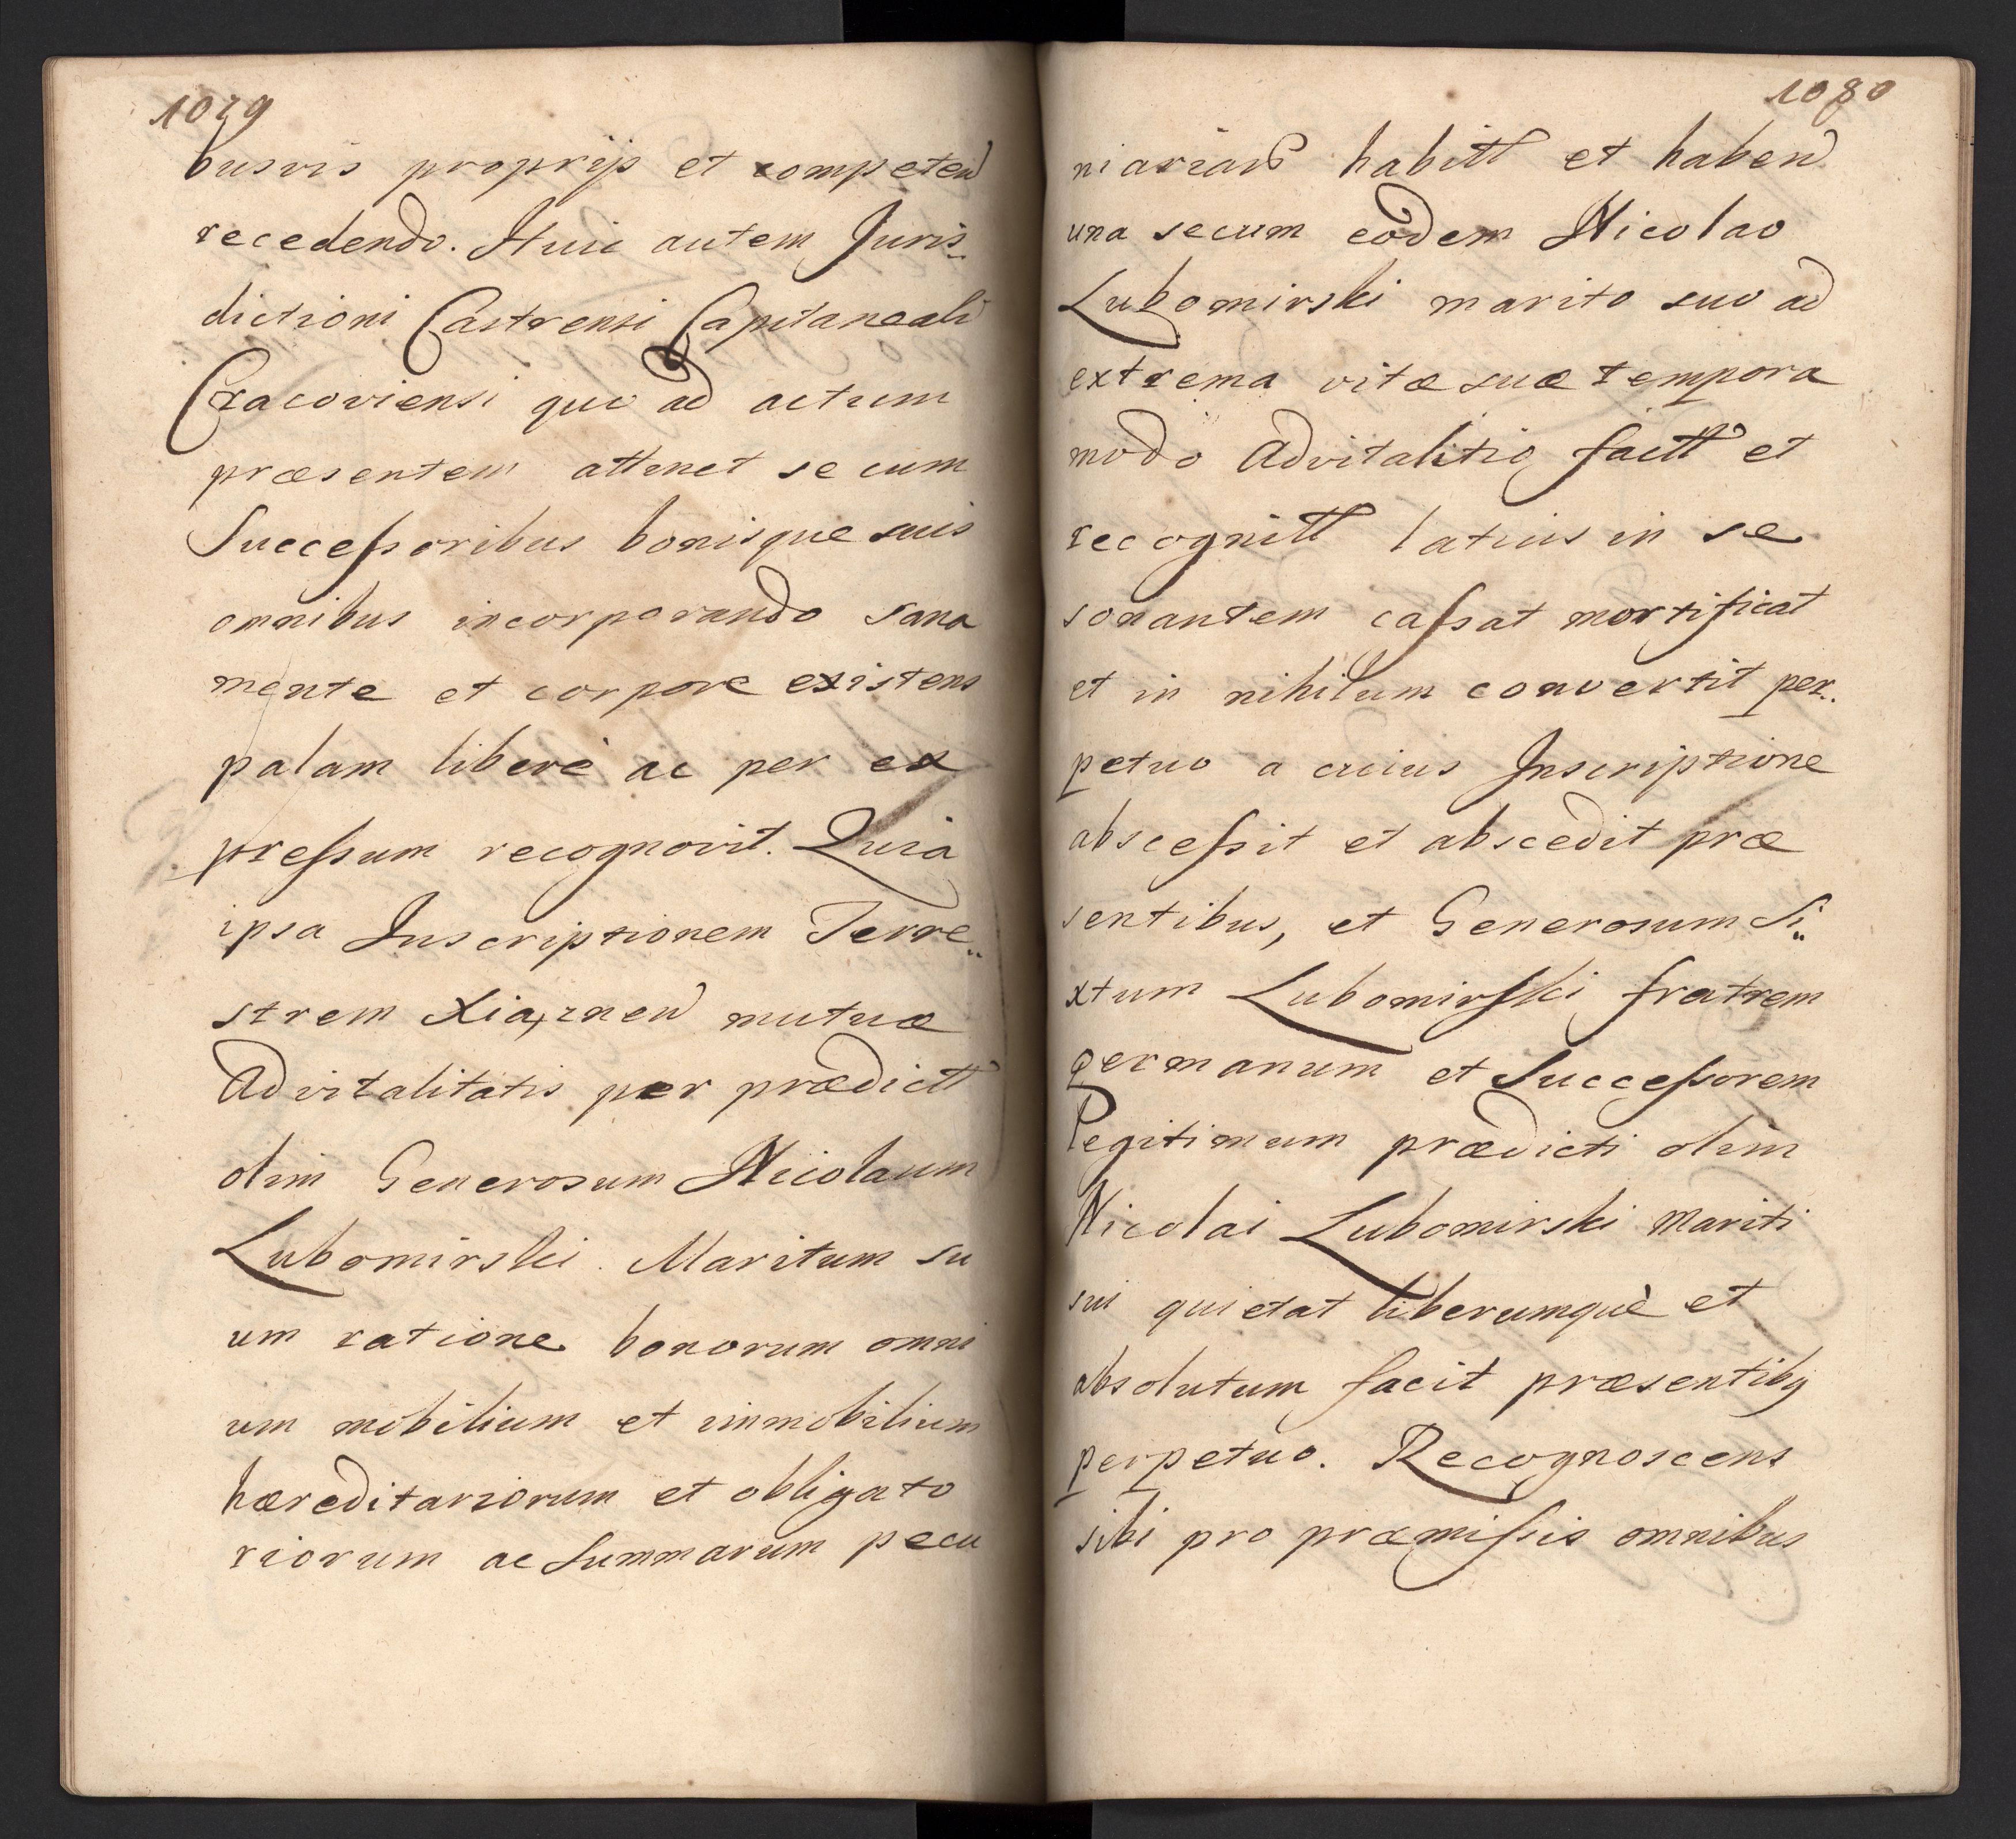 1079
busvis proprijs et competen
recedendo. Huic autem Juris„
dictioni Castrensi Capitaneali
Cracoviensi quo ad actum
præsentem attinet se cum
Successoribus bonisque suis
omnibus incorporando sana
mente et corpore existens
palam liberè ac per ex
pressum recognovit. Quia
ipsa Inscriptionem Terre„
strem Xiążnen mutuæ
Advitalitatis per prædictt
olim Generosum Nicolaum
Lubomirski Maritum su
um ratione bonorum omni
um mobilium et immobilium
hæreditariorum et obligato
riorum ac Summarum pecu
1080
niariar habitt et haben
una secum eodem Nicolao
Lubomirski marito suo ad
extrema vitæ suæ tempora
modo Advitalitio factt et
recognitt latius in se
sonantem cassat mortificat
et in nihilum convertit per„
petuo a cuius Inscriptione
abscessit et abscedit præ
sentibus, et Generosum Si„
xtum Lubomirski fratrem
germanum et Successorem
Legitimum prædicti olim
Nicolai Lubomirski Mariti
sui quietat liberumquè et
absolutum facit præsentibꝫ
perpetuo. Recognoscens
sibi pro præmissis omnibus